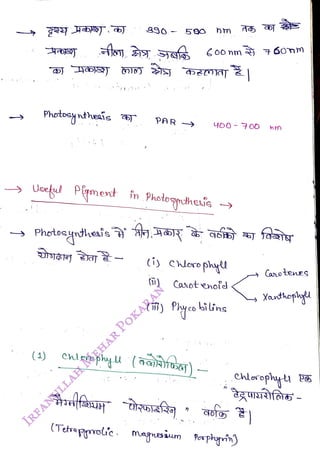 → दृश्य प्रकाश का 390 - 500 nm तक का क्षेत्र
प्रकाश नीला क्षेत्र जबकि 600 nm से 760nm
का प्रकाश लाल क्षेत्र कहलाता है।
→ Photosynthesis का PAR → 400 - 700 nm
→ Useful Pigment in Photosynthesis →
→ Photosynthesis में तीन प्रकार के वर्णकों का विशेष
योगदान होता है -
(i) Chlorophyll
(ii) Carotenoid
Carotenes
Xanthophyll
(iii) Phycobilins
(1) Chlorophyll (क्लोरोफिल) -
Chlorophyll एक
"टेट्रापायरोलिक -
मैग्नीशियम पोरफाइरिन" वर्णक है।
(Tetrapyrrolic magnesium Porphyrin)
IRFANULLAH MEHAR POKARAN